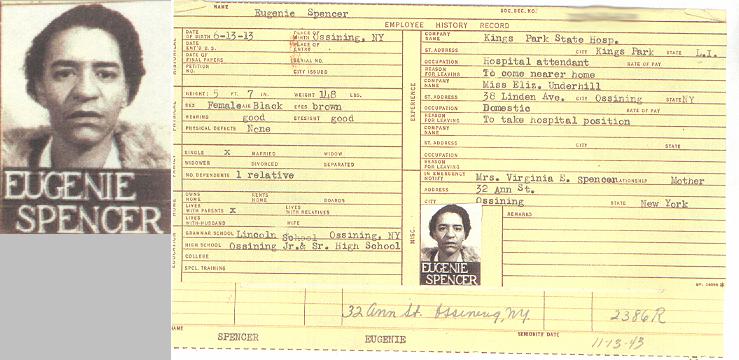 NAME Eugenie Spencer SOC. SEC. NO.
EMPLOYEE HISTORY RECORD
DATE OF BIRTH 6-13-13 PLACE OF BIRTH Ossining, NY
DATE ENT'D U.S. PLACE OF ENTRY
DATE OF FINAL PAPERS SERIAL NO.
PETITION NO. CITY ISSUED
HEIGHT: 5 FT. 7 IN. WEIGHT 148 LBS.
SEX Female HAIR Black EYES brown
HEARING good EYESIGHT good
PHYSICAL DEFECTS None
SINGLE X MARRIED WIDOW
WIDOWER DIVORCED SEPARATED
NO. DEPENDENTS 1 relative
OWNS HOME RENTS HOME BOARDS
LIVES WITH PARENTS X LIVES WITH RELATIVES
LIVES WITH HUSBAND WIFE
GRAMMAR SCHOOL Lincoln School Ossining, NY
HIGH SCHOOL Ossining Jr.& Sr. High School
COLLEGE
SPCL. TRAINING
PHYSICAL
FAMILY
HOME
EDUCATION
EXPERIENCE
MISC.
COMPANY NAME Kings Park State Hosp.
ST. ADDRESS CITY Kings Park STATE L.I.
OCCUPATION Hospital attendant RATE OF PAY
REASON FOR LEAVING To come nearer home
COMPANY NAME Miss Eliz. Underhill
ST. ADDRESS 38 Linden Ave. CITY Ossining STATE NY
OCCUPATION Domestic RATE OF PAY
REASON FOR LEAVING To take hospital position
COMPANY NAME
ST. ADDRESS CITY STATE
OCCUPATION
REASON FOR LEAVING
IN EMERGENCY NOTIFY Mrs. Virginia E. Spencer RELATIONSHIP Mother
ADDRESS 32 Ann St.
CITY Ossining STATE New York
REMARKS
EUGENIE
SPENCER
EUGENIE
SPENCER
32 Ann St. Ossining, NY. 2386R
NAME SPENCER EUGENIE SENIORITY DATE 11-13-43